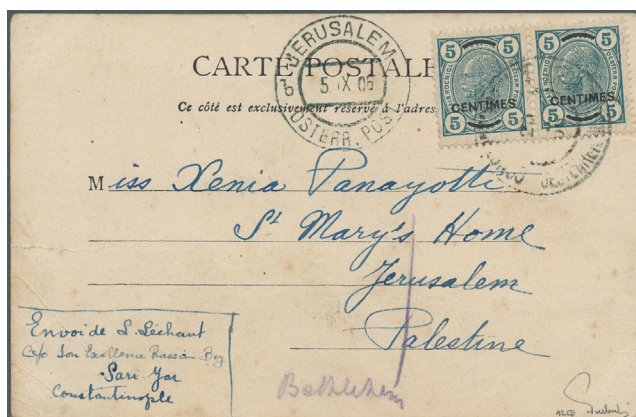 CARTE POSTALE
Ce côté est exclusivement réservé à l'adresse
JERUSALEM
5 IX 06
OSTERR. POST
5 5
CENTIMES
5 5
5 5
CENTIMES
5 5
Miss Xenia Panayotti
St Mary's Home
Jerusalem
Palestine
Bethlehem
Envoi de L. Léchant
c/o Son Excellence Bey
Sari Yar
Constantinople